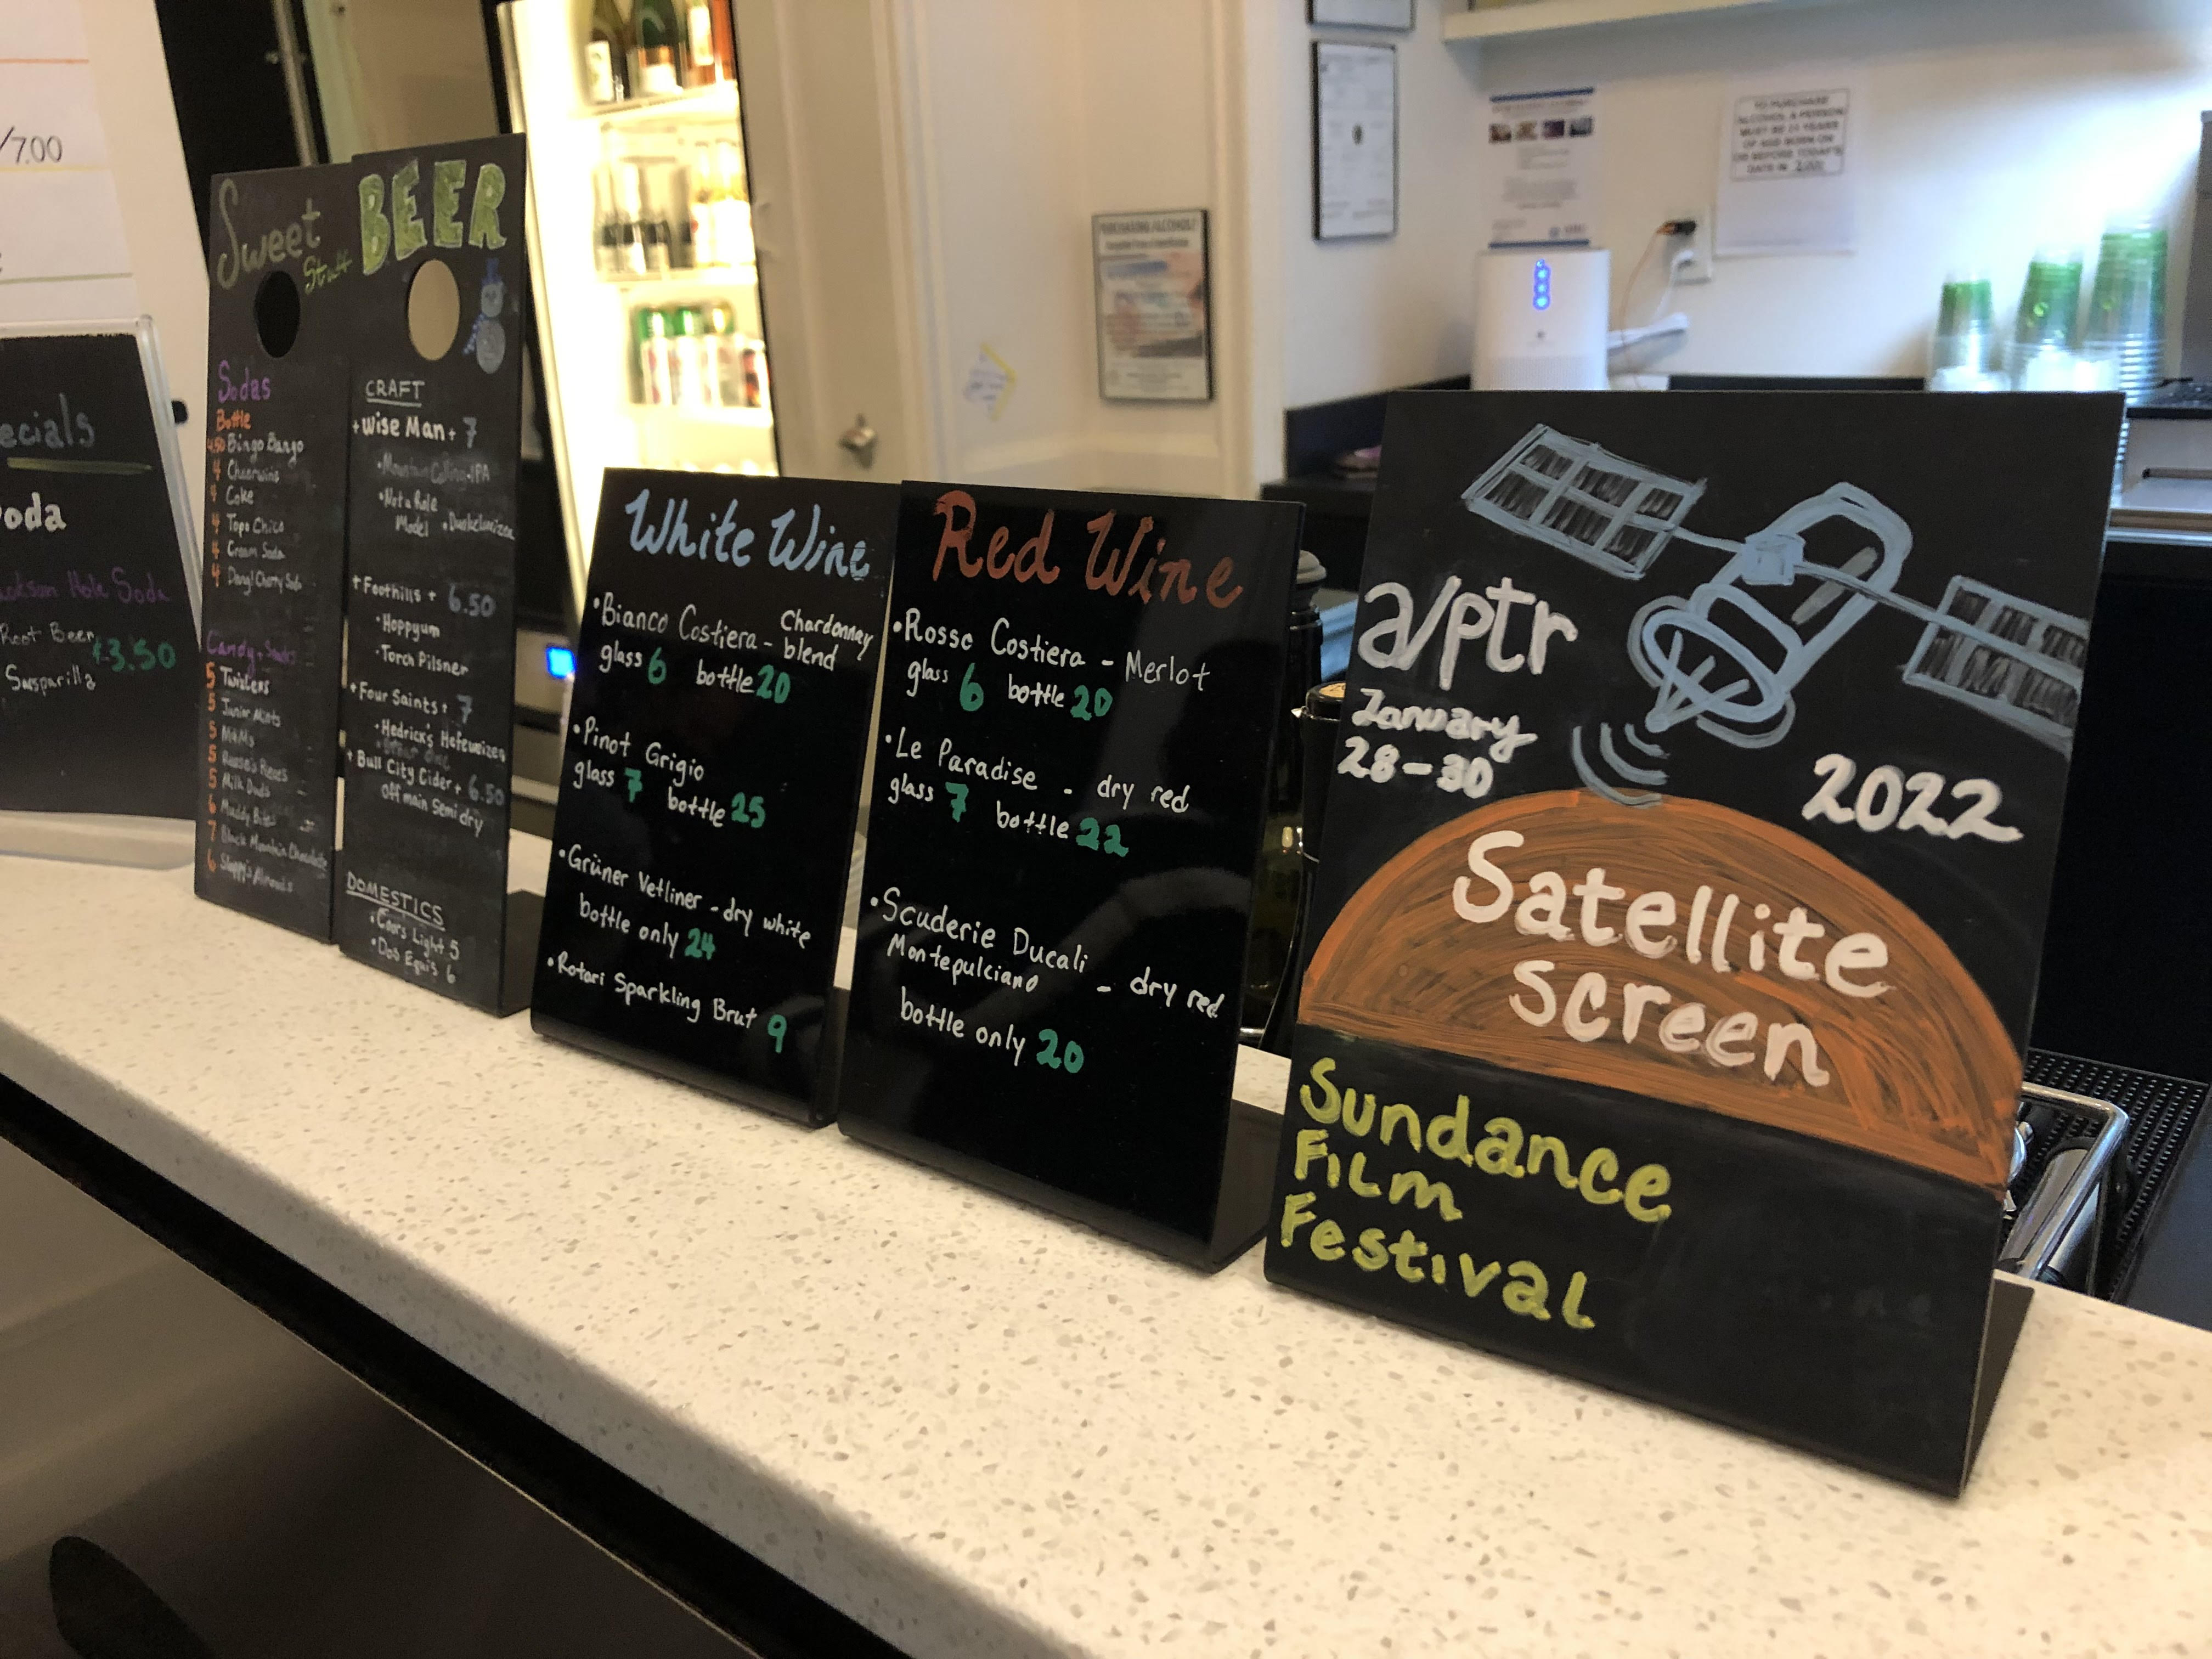 /7.00
ecials
oda
Jackson Hole Soda
Root Beer
Sarsparilla
$3.50
Sweet
Stuff
Sodas
Bottle
4.50 Bingo Bango
4 Cheerwine
4 Coke
4 Topo Chico
4 Cream Soda
4 Dang! Cherry Soda
5 Twizlers
5 Junior Mints
5 M&Ms
5 Reese's Pieces
5 Milk Duds
6 Muddy Bites
7 Black Mountain Chocolate
BEER
CRAFT
+Wise Man+ 7
•Mountain Calling •IPA
•Not a Role
Model •Dunkelweizen
+Foothills+ 6.50
•Hoppyum
•Torch Pilsner
+Four Saints+ 7
•Hedrick's Hefeweizen
+Bull City Cider+ 6.50
Off main Semi dry
DOMESTICS
•Coors Light 5
•Dos Equis 6
White Wine
•Bianco Costiera - Chardonnay
blend
glass 6 bottle 20
•Pinot Grigio
glass 7 bottle 25
•Grüner Vetliner - dry white
bottle only 24
•Rotari Sparkling Brut 9
Red Wine
•Rosso Costiera - Merlot
glass 6 bottle 20
•Le Paradise - dry red
glass 7 bottle 22
•Scuderie Ducali
Montepulciano - dry red
bottle only 20
PURCHASING ALCOHOL?
TO PURCHASE
ALCOHOL A PERSON
MUST BE 21 YEARS
OF AGE BORN ON
OR BEFORE TODAY'S
DATE IN 2001
a/ptr
January
28-30
2022
Satellite
screen
Sundance
Film
Festival